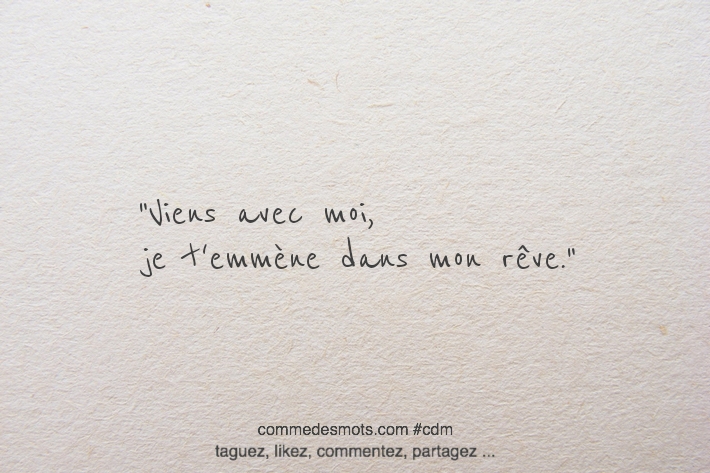 "Viens avec moi,
je t'emmène dans mon rêve."
commedesmots.com #cdm
taguez, likez, commentez, partagez ...